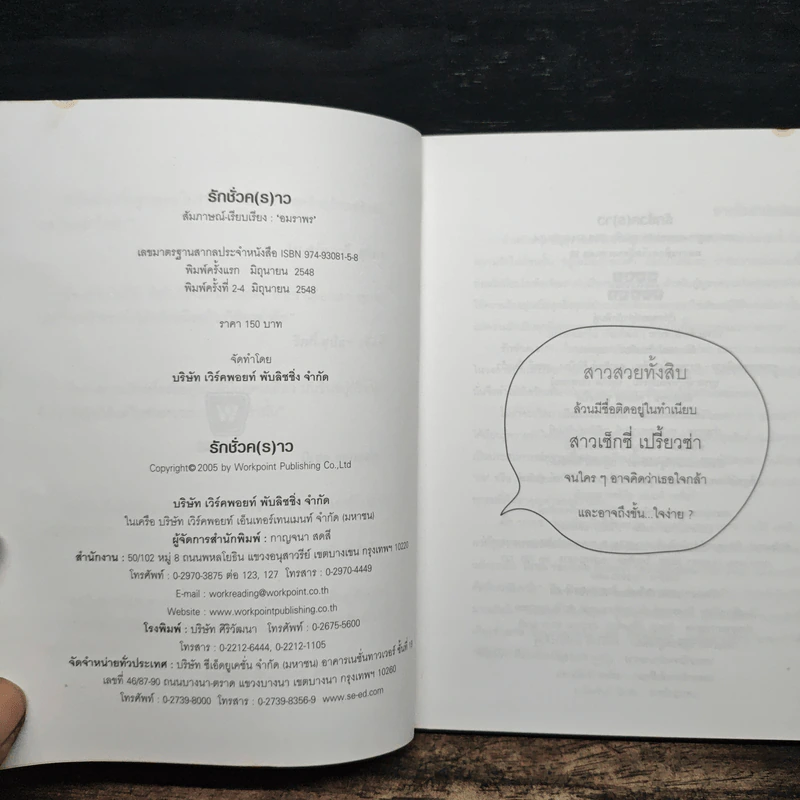 รักชั่วค(ร)าว
สัมภาษณ์-เรียบเรียง : "อมราพร"
เลขมาตรฐานสากลประจำหนังสือ ISBN 974-93081-5-8
พิมพ์ครั้งแรก มิถุนายน 2548
พิมพ์ครั้งที่ 2-4 มิถุนายน 2548
ราคา 150 บาท
จัดทำโดย
บริษัท เวิร์คพอยท์ พับลิชชิ่ง จำกัด
รักชั่วค(ร)าว
Copyright© 2005 by Workpoint Publishing Co.,Ltd
บริษัท เวิร์คพอยท์ พับลิชชิ่ง จำกัด
ในเครือ บริษัท เวิร์คพอยท์ เอ็นเทอร์เทนเมนท์ จำกัด (มหาชน)
ผู้จัดการสำนักพิมพ์ : กาญจนา สดสี
สำนักงาน : 50/102 หมู่ 8 ถนนพหลโยธิน แขวงอนุสาวรีย์ เขตบางเขน กรุงเทพฯ 10220
โทรศัพท์ : 0-2970-3875 ต่อ 123, 127 โทรสาร : 0-2970-4449
E-mail : workreading@workpoint.co.th
Website : www.workpointpublishing.co.th
โรงพิมพ์ : บริษัท ศิริวัฒนา โทรศัพท์ : 0-2675-5600
โทรสาร : 0-2212-6444, 0-2212-1105
จัดจำหน่ายทั่วประเทศ : บริษัท ซีเอ็ดยูเคชั่น จำกัด (มหาชน) อาคารเนชั่นทาวเวอร์ ชั้นที่
เลขที่ 46/87-90 ถนนบางนา-ตราด แขวงบางนา เขตบางนา กรุงเทพฯ 10260
โทรศัพท์ : 0-2739-8000 โทรสาร : 0-2739-8356-9 www.se-ed.com
สาวสวยทั้งสิบ
ล้วนมีชื่อติดอยู่ในทำเนียบ
สาวเซ็กซี่ เปรี้ยวซ่า
จนใคร ๆ อาจคิดว่าเธอใจกล้า
และอาจถึงขั้น...ใจง่าย ?